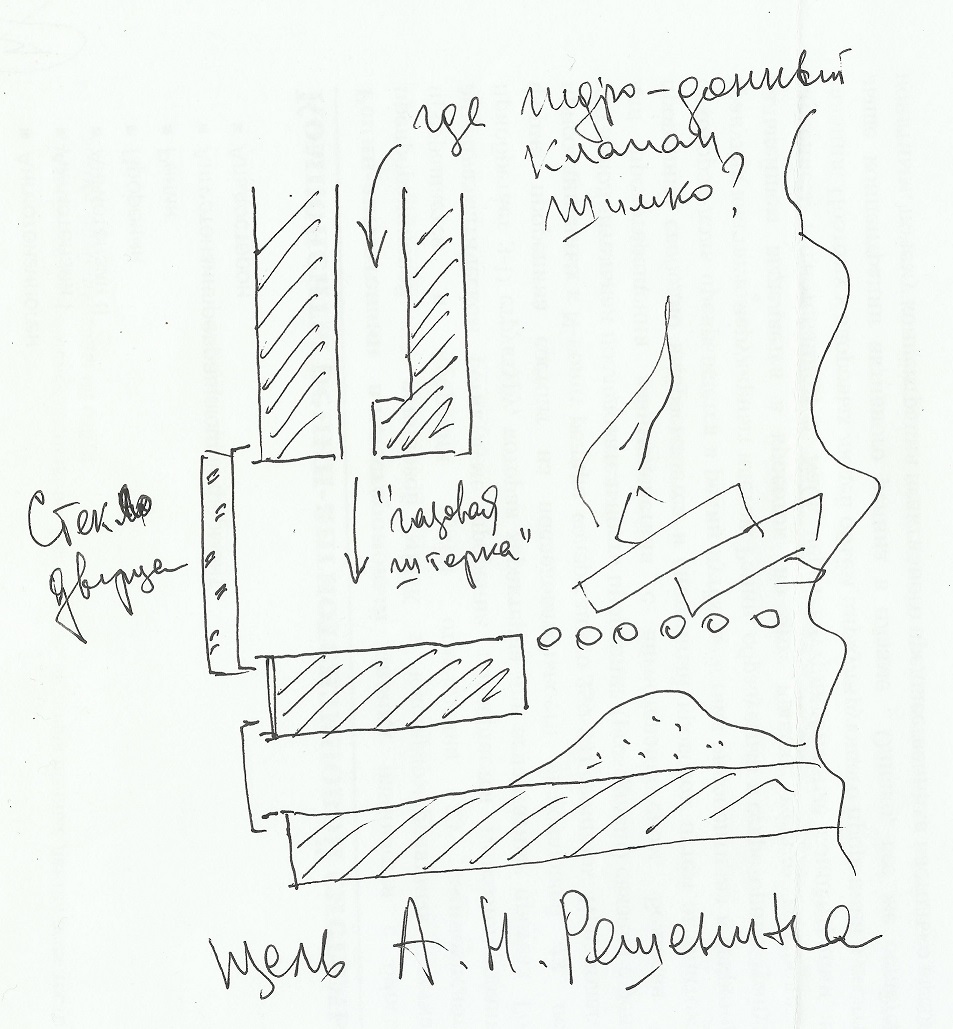 где гидро-донный
клапан
Шимко?
Стекло
дверца
"газовая
шторка"
щель А. Н. Решетника